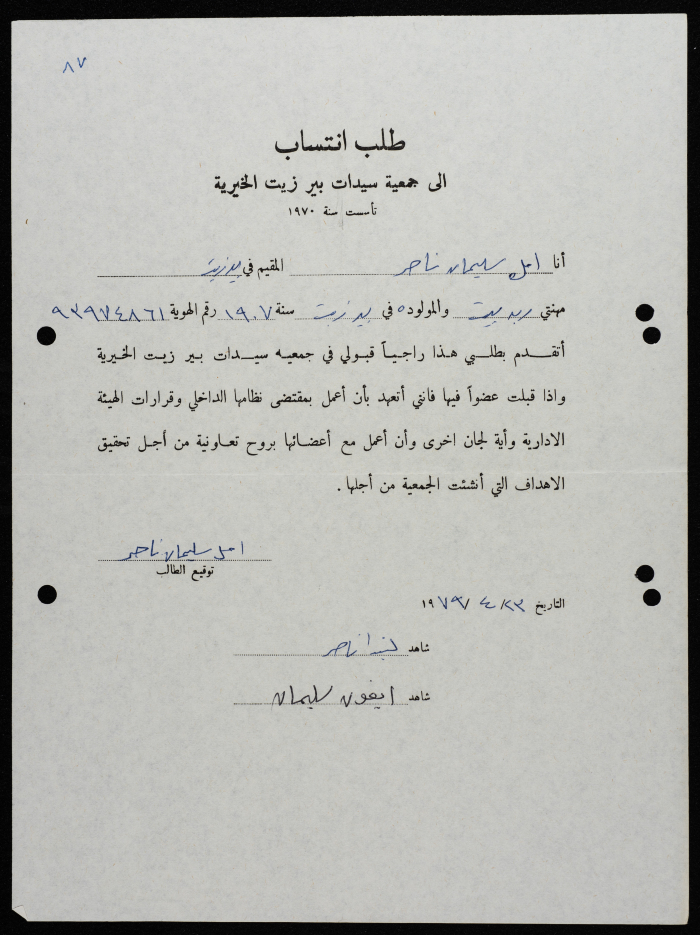 ٨٧
طلب انتساب
الى جمعية سيدات بير زيت الخيرية
تأسست سنة ١٩٧٠
أنا امل سليمان ناصر المقيم في بيرزيت
مهنتي ربة بيت والمولود ه في بيرزيت سنة ١٩٠٧ رقم الهوية ٩٣٩٧٤٨٦١
أتقدم بطلبي هذا راجياً قبولي في جمعيه سيدات بير زيت الخيرية
واذا قبلت عضواً فيها فانني أتعهد بأن أعمل بمقتضى نظامها الداخلي وقرارات الهيئة
الادارية وأية لجان اخرى وأن أعمل مع أعضائها بروح تعاونية من أجل تحقيق
الاهداف التي أنشئت الجمعية من أجلها .
امل سليمان ناصر
توقيع الطالب
التاريخ ٢٣/ ٤ /١٩٧٩
شاهد ناصر
شاهد ايفون سليمان